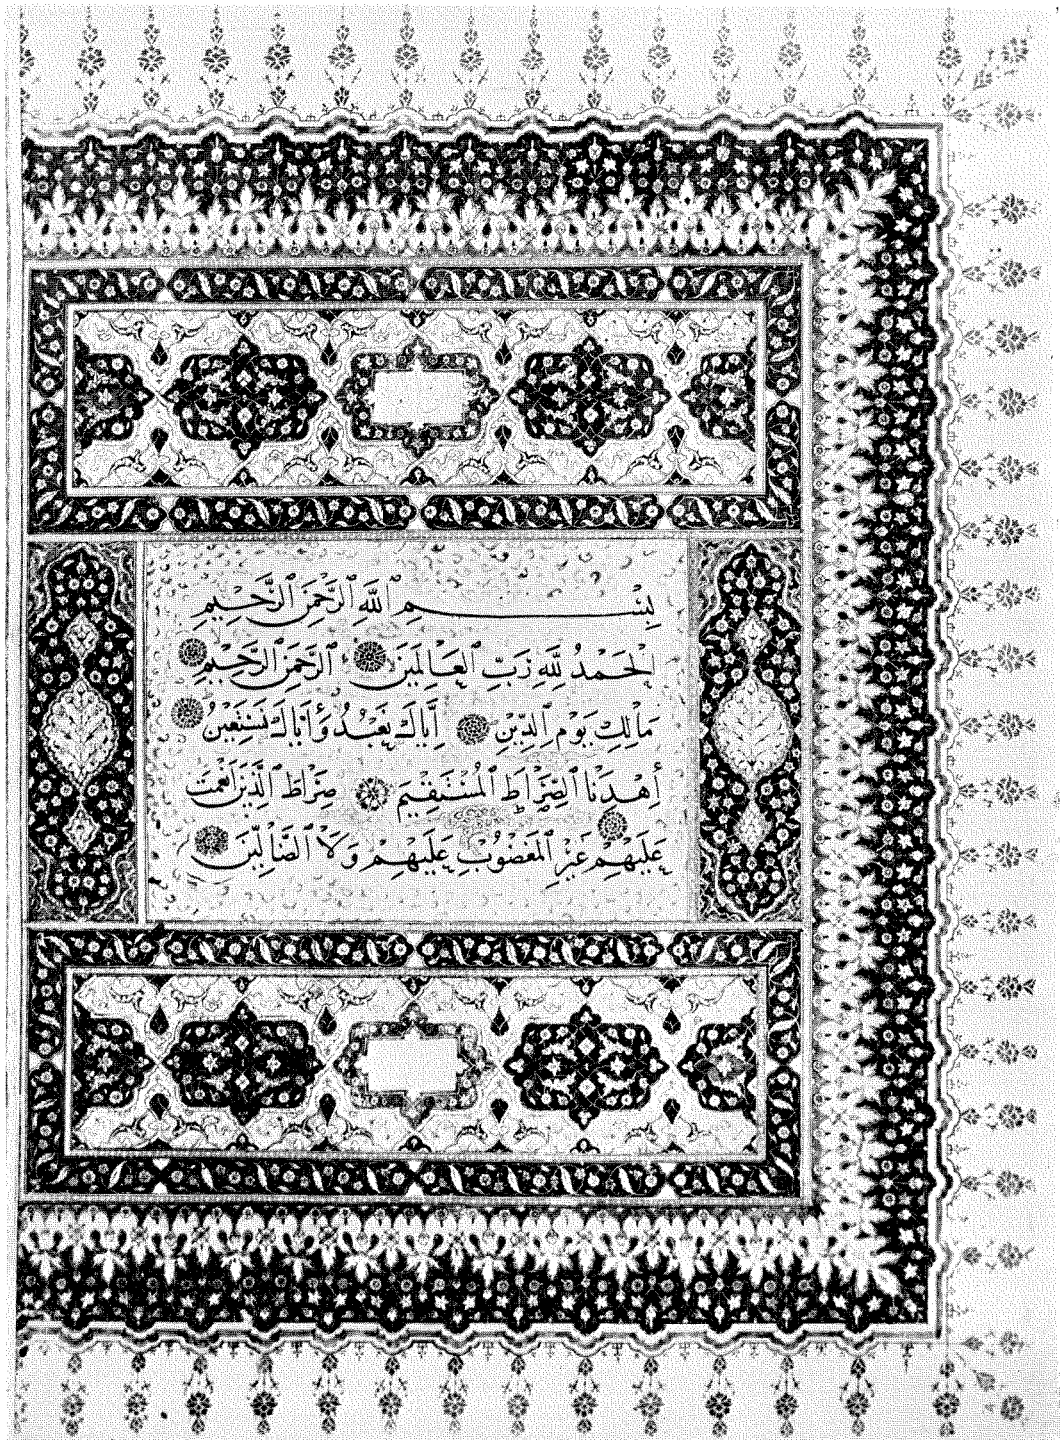 بِسْمِ ٱللَّهِ ٱلرَّحْمَنِ ٱلرَّحِيمِ
الْحَمْدُ لِلَّهِ رَبِّ الْعَالَمِينَ الرَّحْمَنِ الرَّحِيمِ
مَالِكِ يَوْمِ الدِّينِ إِيَّاكَ نَعْبُدُ وَإِيَّاكَ نَسْتَعِينُ
أهْدِنَا الصِّرَاطَ الْمُسْتَقِيمَ صِرَاطَ الَّذِينَ أَنْعَمْتَ
عَلَيْهِمْ غَيْرِ الْمَغْضُوبِ عَلَيْهِمْ وَلَا الضَّالِّينَ